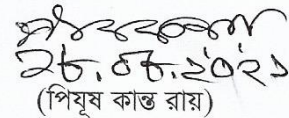 ২৮.০৮.২০২১
(পিযূষ কান্ত রায়)